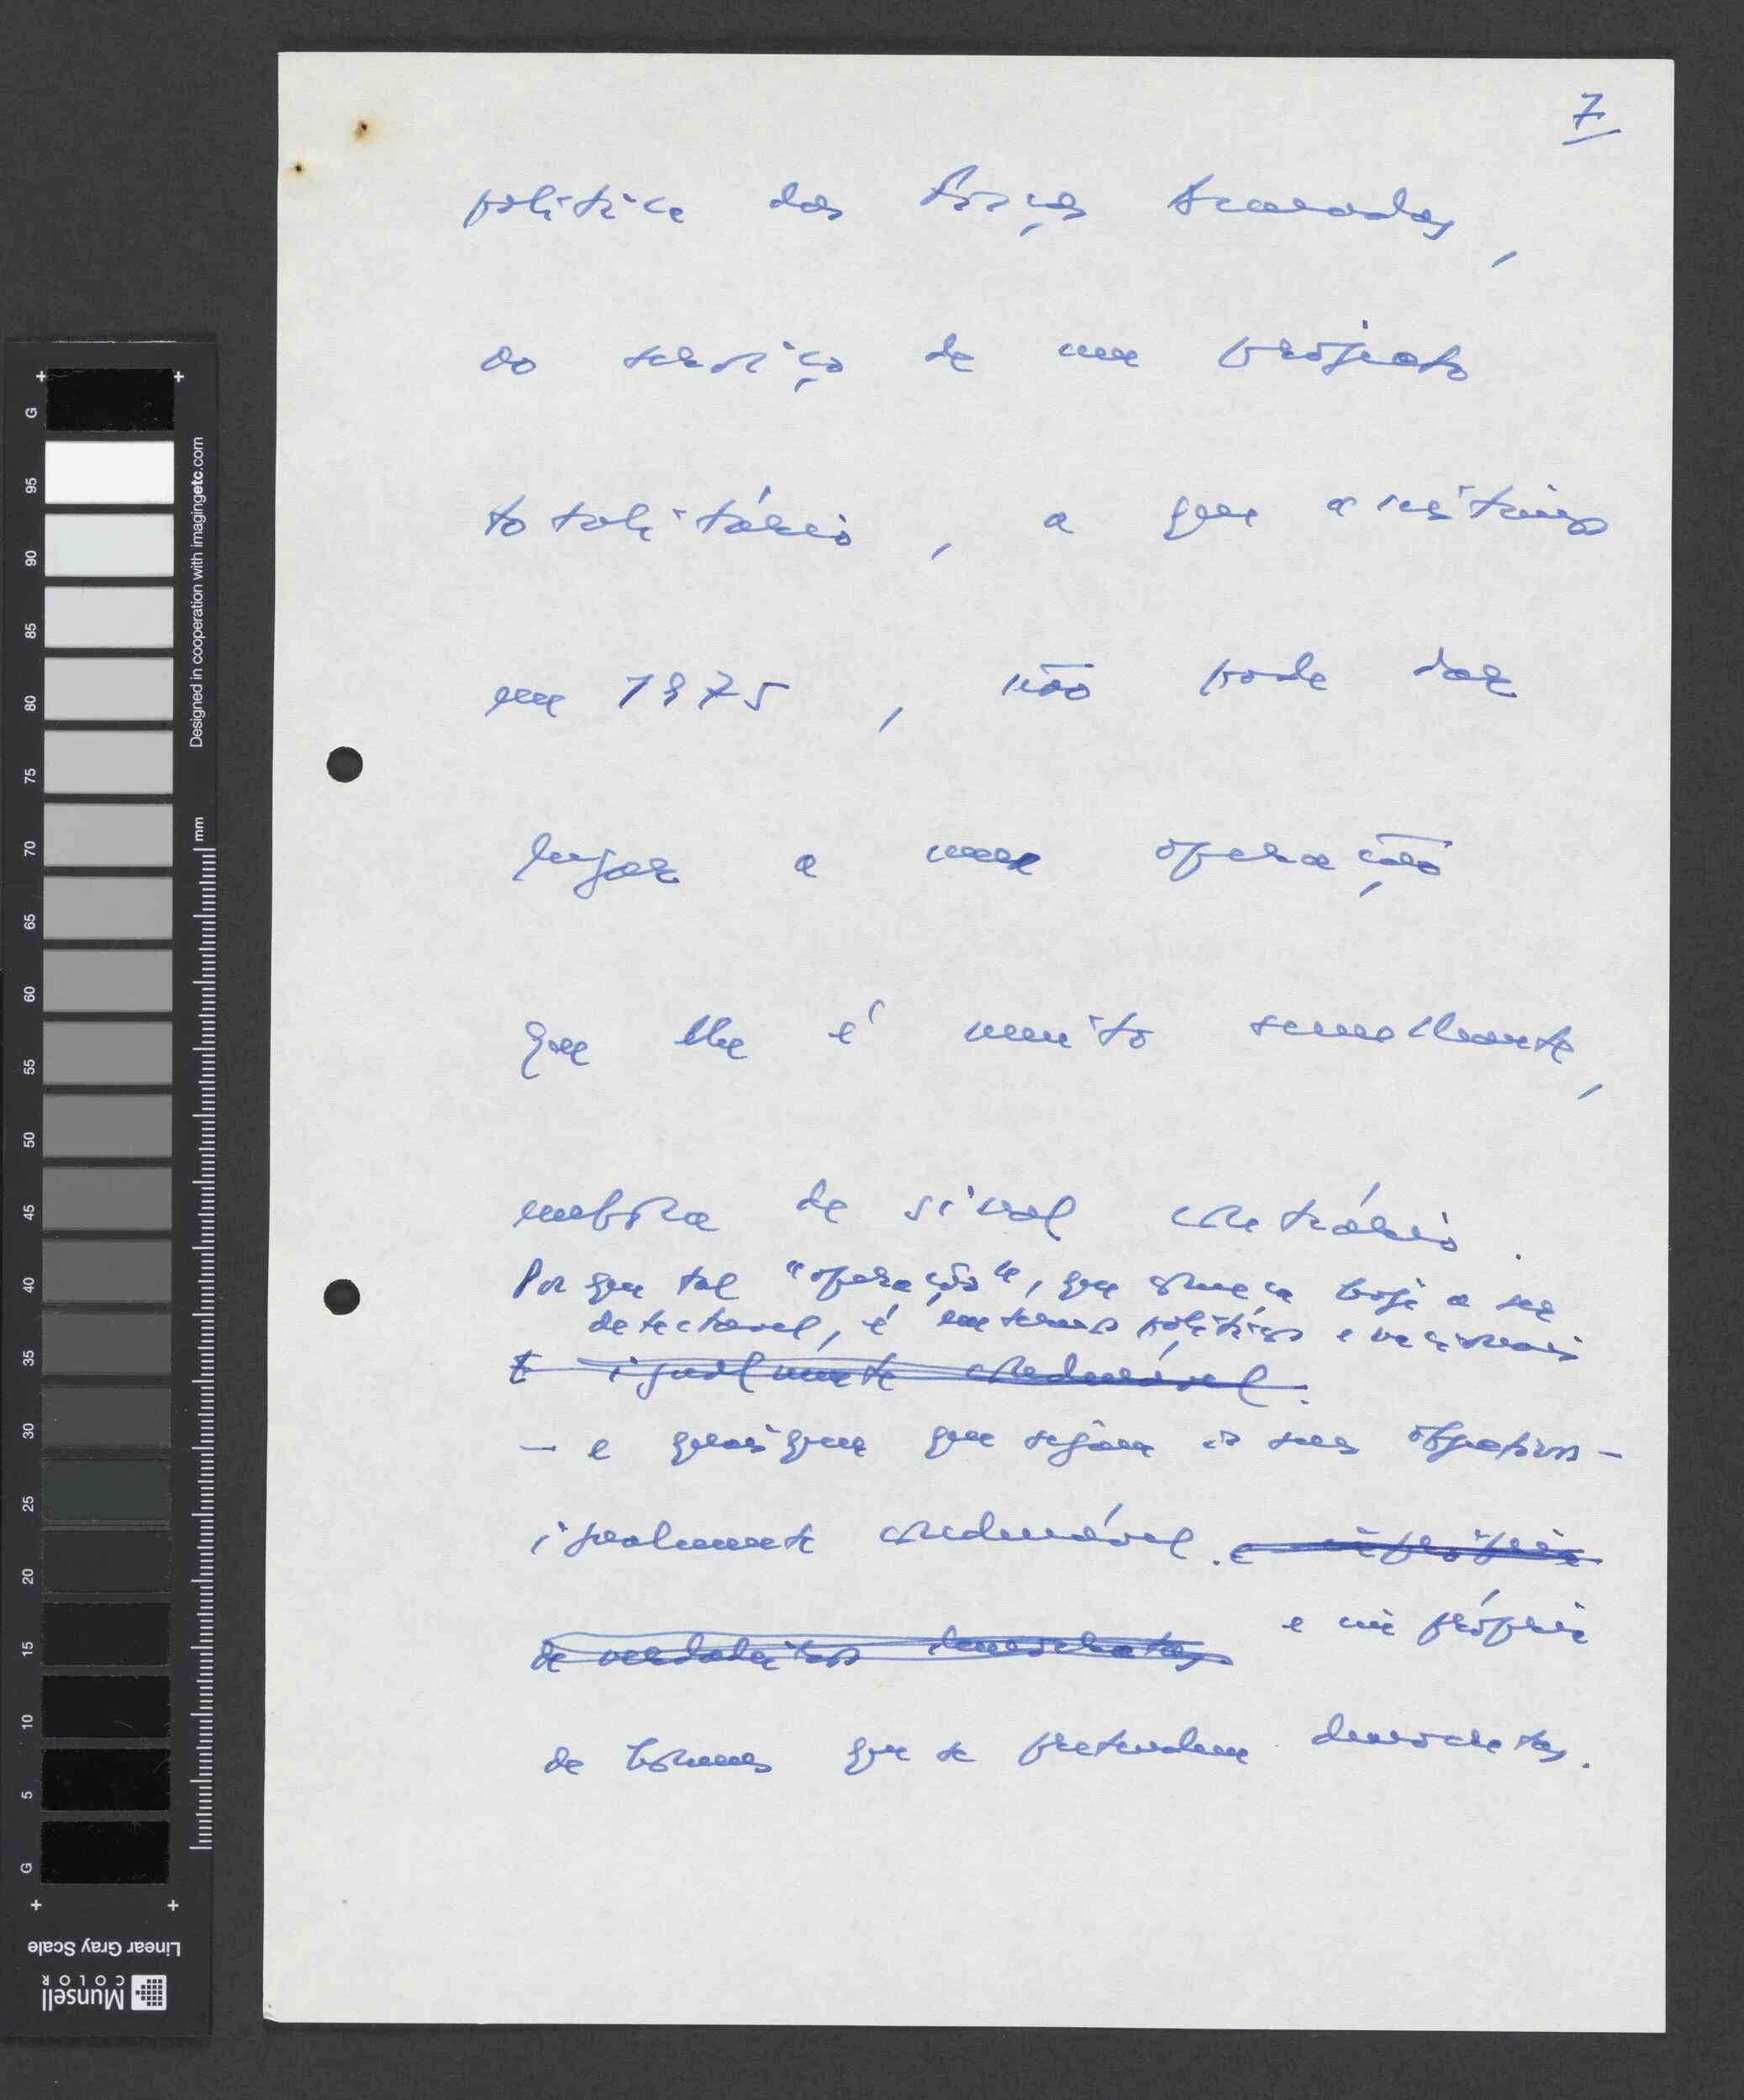 7
política das Forças Armadas,
ao serviço de um projecto
totalitário, a que assistimos
em 1975, não pode dar
lugar a uma operação
que lhe é muito semelhante,
embora de sinal contrário.
Por que tal "operação", que começa hoje a ser
detectavel, é em termos políticos e nacionais
É igualmente condenável.
— e quaisquer que sejam os seus objectivos —
igualmente condenável. e imprópria
de verdadeiros democratas e imprópria
de homens que se pretendem democratas.
G
95
90
85
80
75
70
65
60
55
50
45
40
35
30
25
20
15
10
5
G
Designed in cooperation with imagingetc.com
mm
Linear Gray Scale
Munsell
COLOR